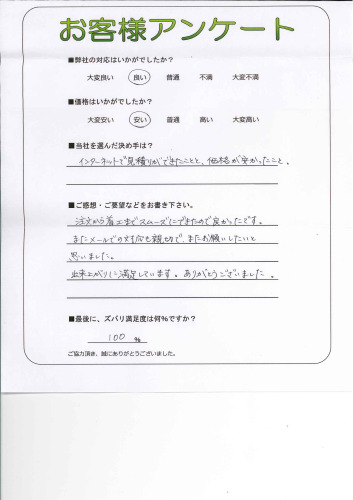 お客様アンケート
■弊社の対応はいかがでしたか？
大変良い 良い 普通 不満 大変不満
■価格はいかがでしたか？
大変安い 安い 普通 高い 大変高い
■当社を選んだ決め手は？
インターネットで見積りができたことと、価格が安かったこと。
■ご感想・ご要望などをお書き下さい。
注文から着工までスムーズにできたので良かったです。
またメールでの対応も親切で、またお願いしたいと
思いました。
出来上がりに満足しています。ありがとうございました。
■最後に、ズバリ満足度は何%ですか？
100 %
ご協力頂き、誠にありがとうございました。